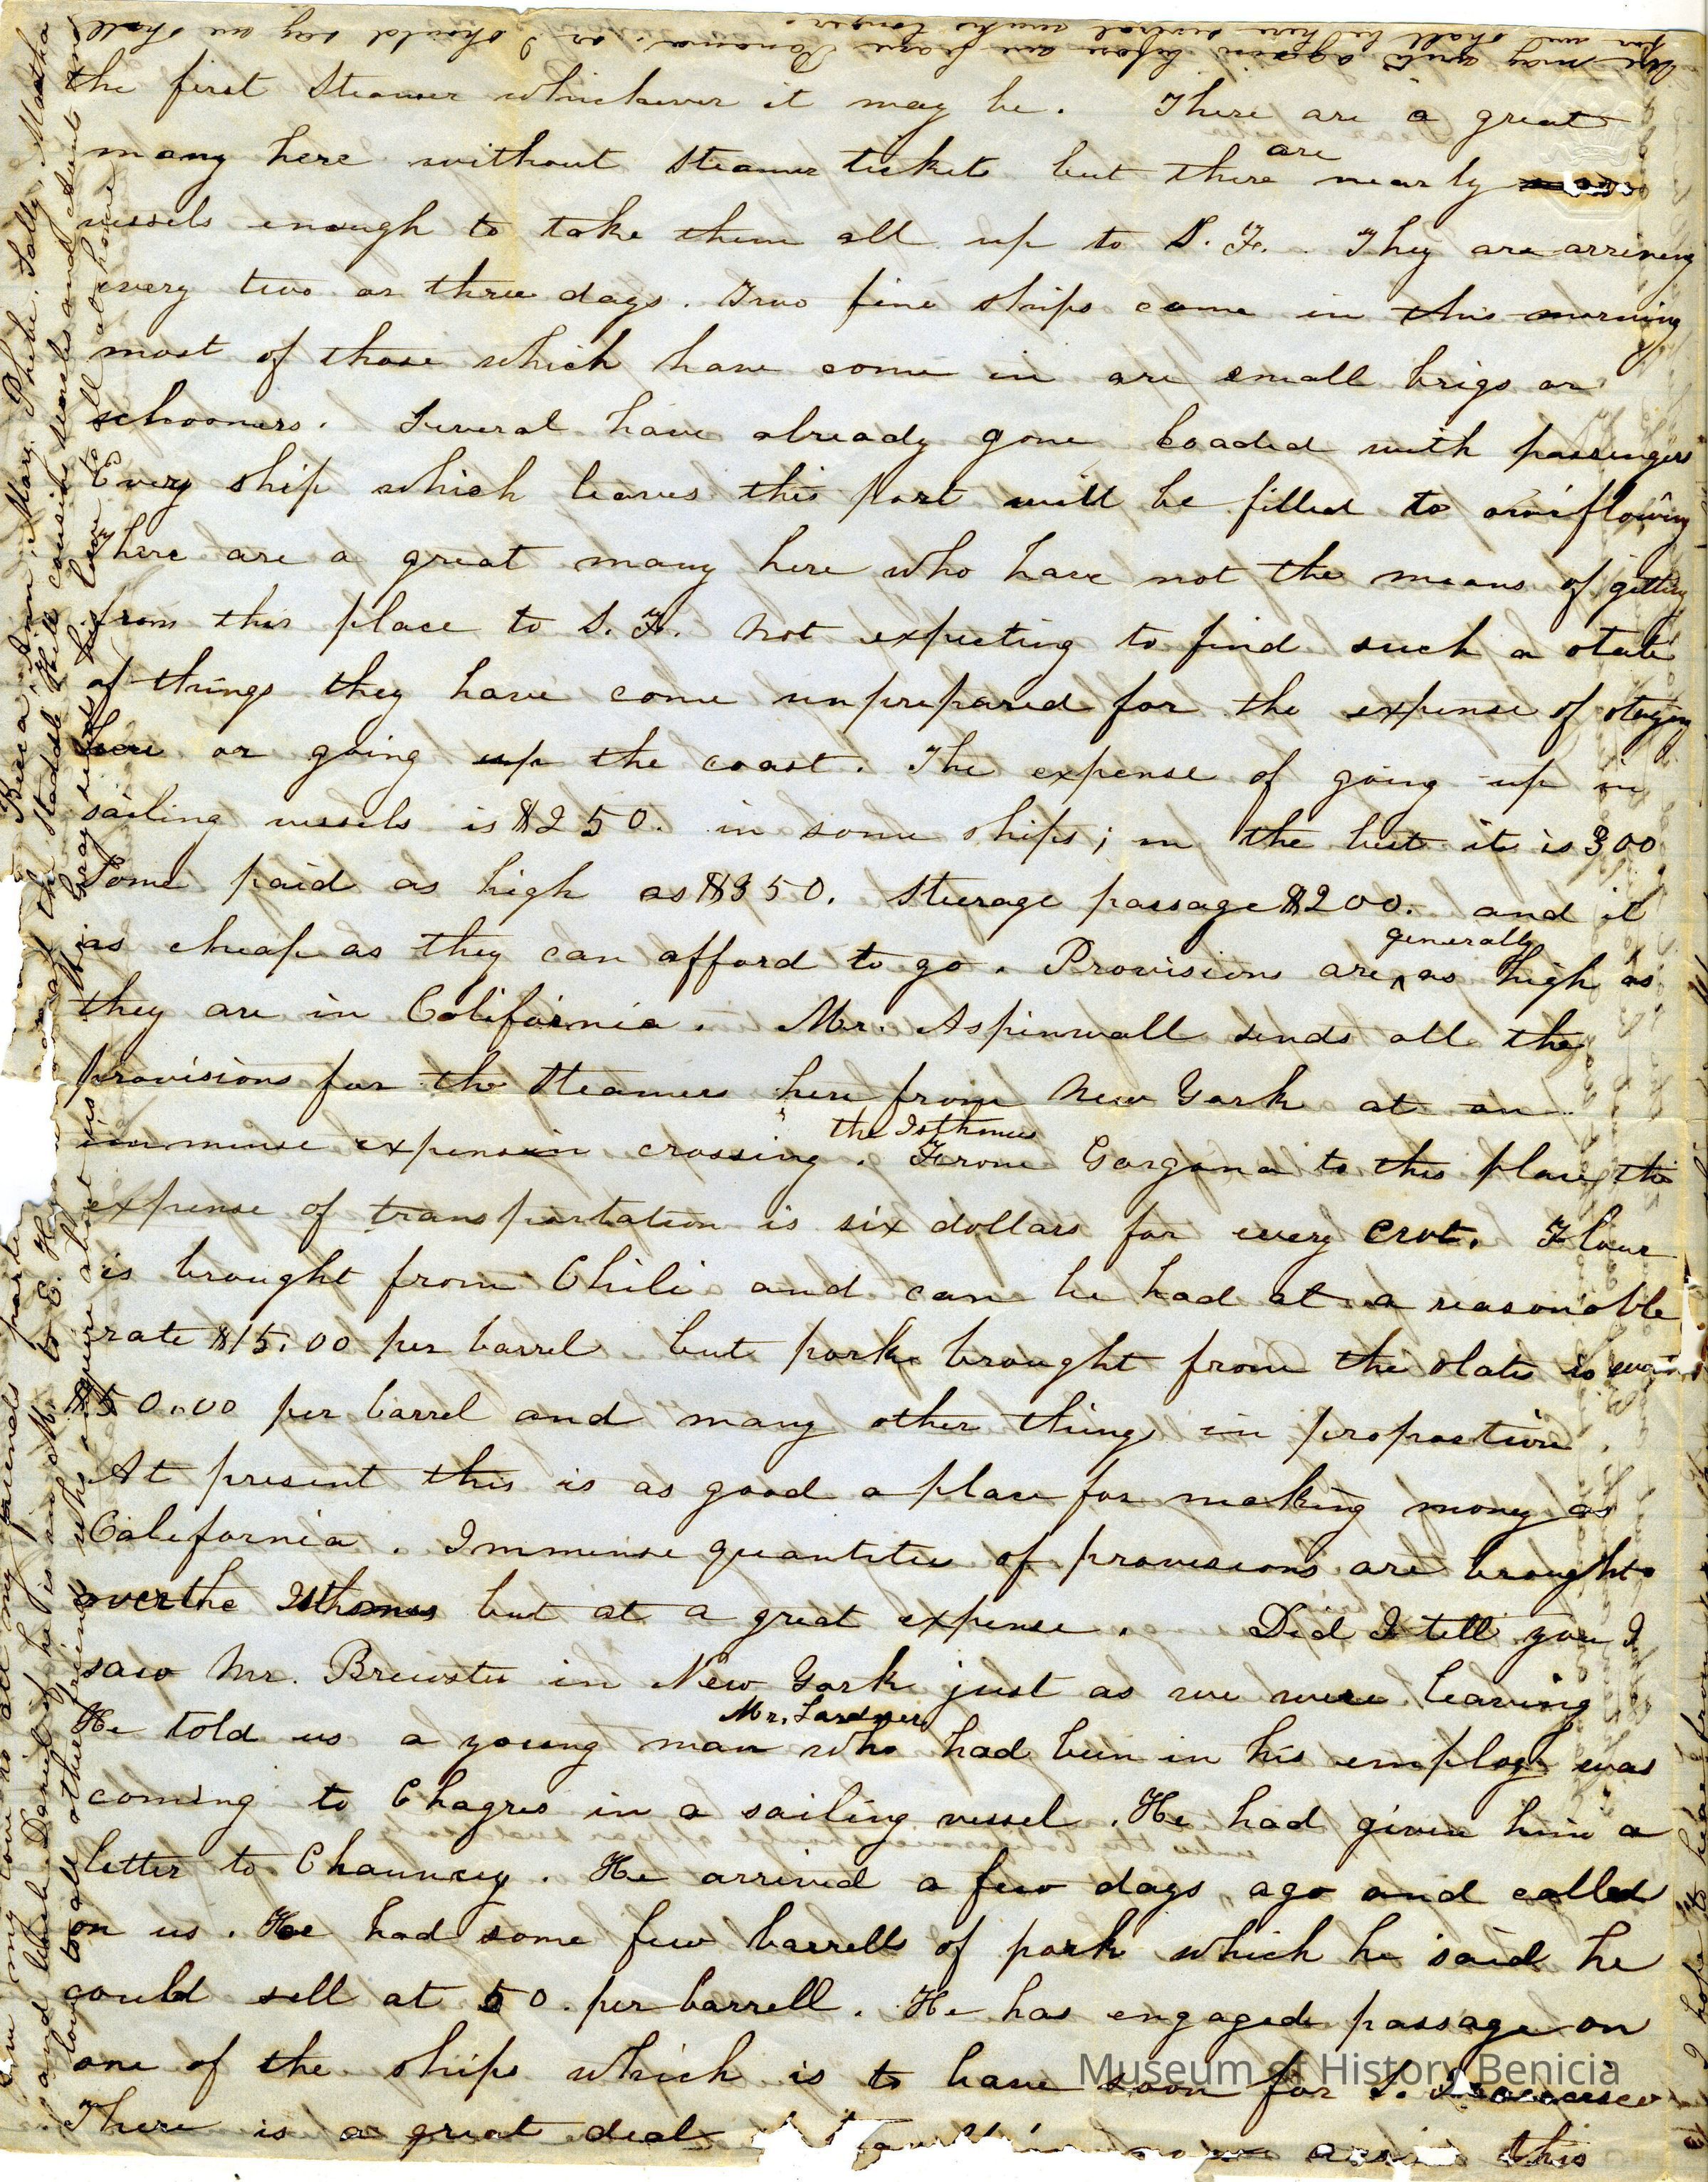 We may write again before we leave Panama, or I should say we shall
for we shall be here several weeks longer.
the first Steamer whichever it may be. There are a great
many here without steamer tickets but there are nearly
vessels enough to take them all up to S. F. They are arriving
every two or three days. Two fine ships came in this morning
most of those which have come in are small brigs or
schooners. Several have already gone loaded with passengers
Every ship which leaves this port will be filled to overflowing
There are a great many here who have not the means of getting
from this place to S. F. Not expecting to find such a state
of things they have come unprepared for the expense of staying
here or going up the coast. The expense of going up in
sailing vessels is $250. in some ships; in the best it is 300
Some paid as high as $350. Steerage passage $200. and it
as cheap as they can afford to go. Provisions are generally as high as
they are in California. Mr. Aspinwall sends all the
provisions for the Steamers here from New York at an
immense expense in crossing the Isthmus. From Gorgona to this place the
expense of transportation is six dollars for every cwt. Flour
is brought from Chili and can be had at a reasonable
rate $15.00 per barrel but pork brought from the states is
$50.00 per barrel and many other things in proportion.
At present this is as good a place for making money as
California. Immense quantities of provisions are brought
over the Isthmus but at a great expense. Did I tell you I
saw Mr. Brewster in New York just as we were leaving
He told us a young man Mr. Lardner who had been in his employ was
coming to Chagres in a sailing vessel. He had given him a
letter to Chauncey. He arrived a few days ago and called
on us. He had some few barrells of pork which he said he
could sell at 50. per barrell. He has engaged passage on
one of the ships which is to leave soon for S. Francisco
There is a great deal this
Mary, Phebe, Sally, Martha
cousins uncles and aunts and
Mr. Gray sends his love to all at home
to all other friends who enquire about us
I hope to hear from
Museum of History Benicia